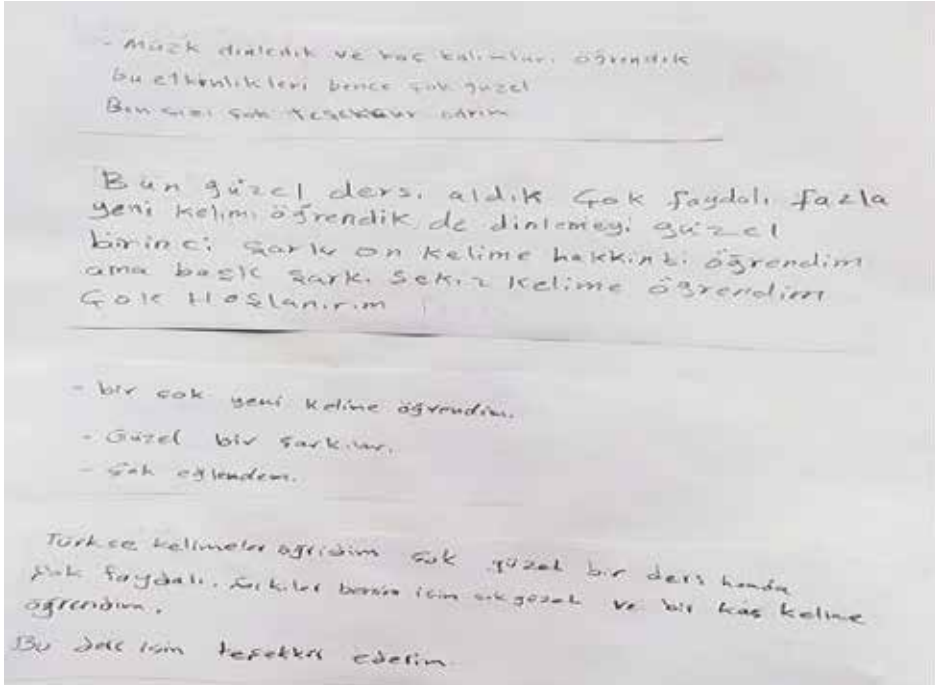 - Müzk dinledik ve kaç kalimlar. öğrendik
bu etkenlikleri bence çok güzel
Ben sizi çok teşekkur edrim
Bün güzel dersi aldık Çok faydalı fazla
yeni kelimi öğrendik de dinlemeyi güzel
birinci şarkı on kelime hakkinbi öğrendim
ama başk şarkı sekiz kelime öğrendim
Çok Hoşlanırım
- bir çok yeni kelime öğrendim.
- Güzel bir şarkılar.
- çok eğlendem.
Türkçe kelimeler öğridim çok güzel bir ders
çok faydalı. için çok güzel ve bir kaç kelime
öğrendim.
Bu ders için teşekkr ederim